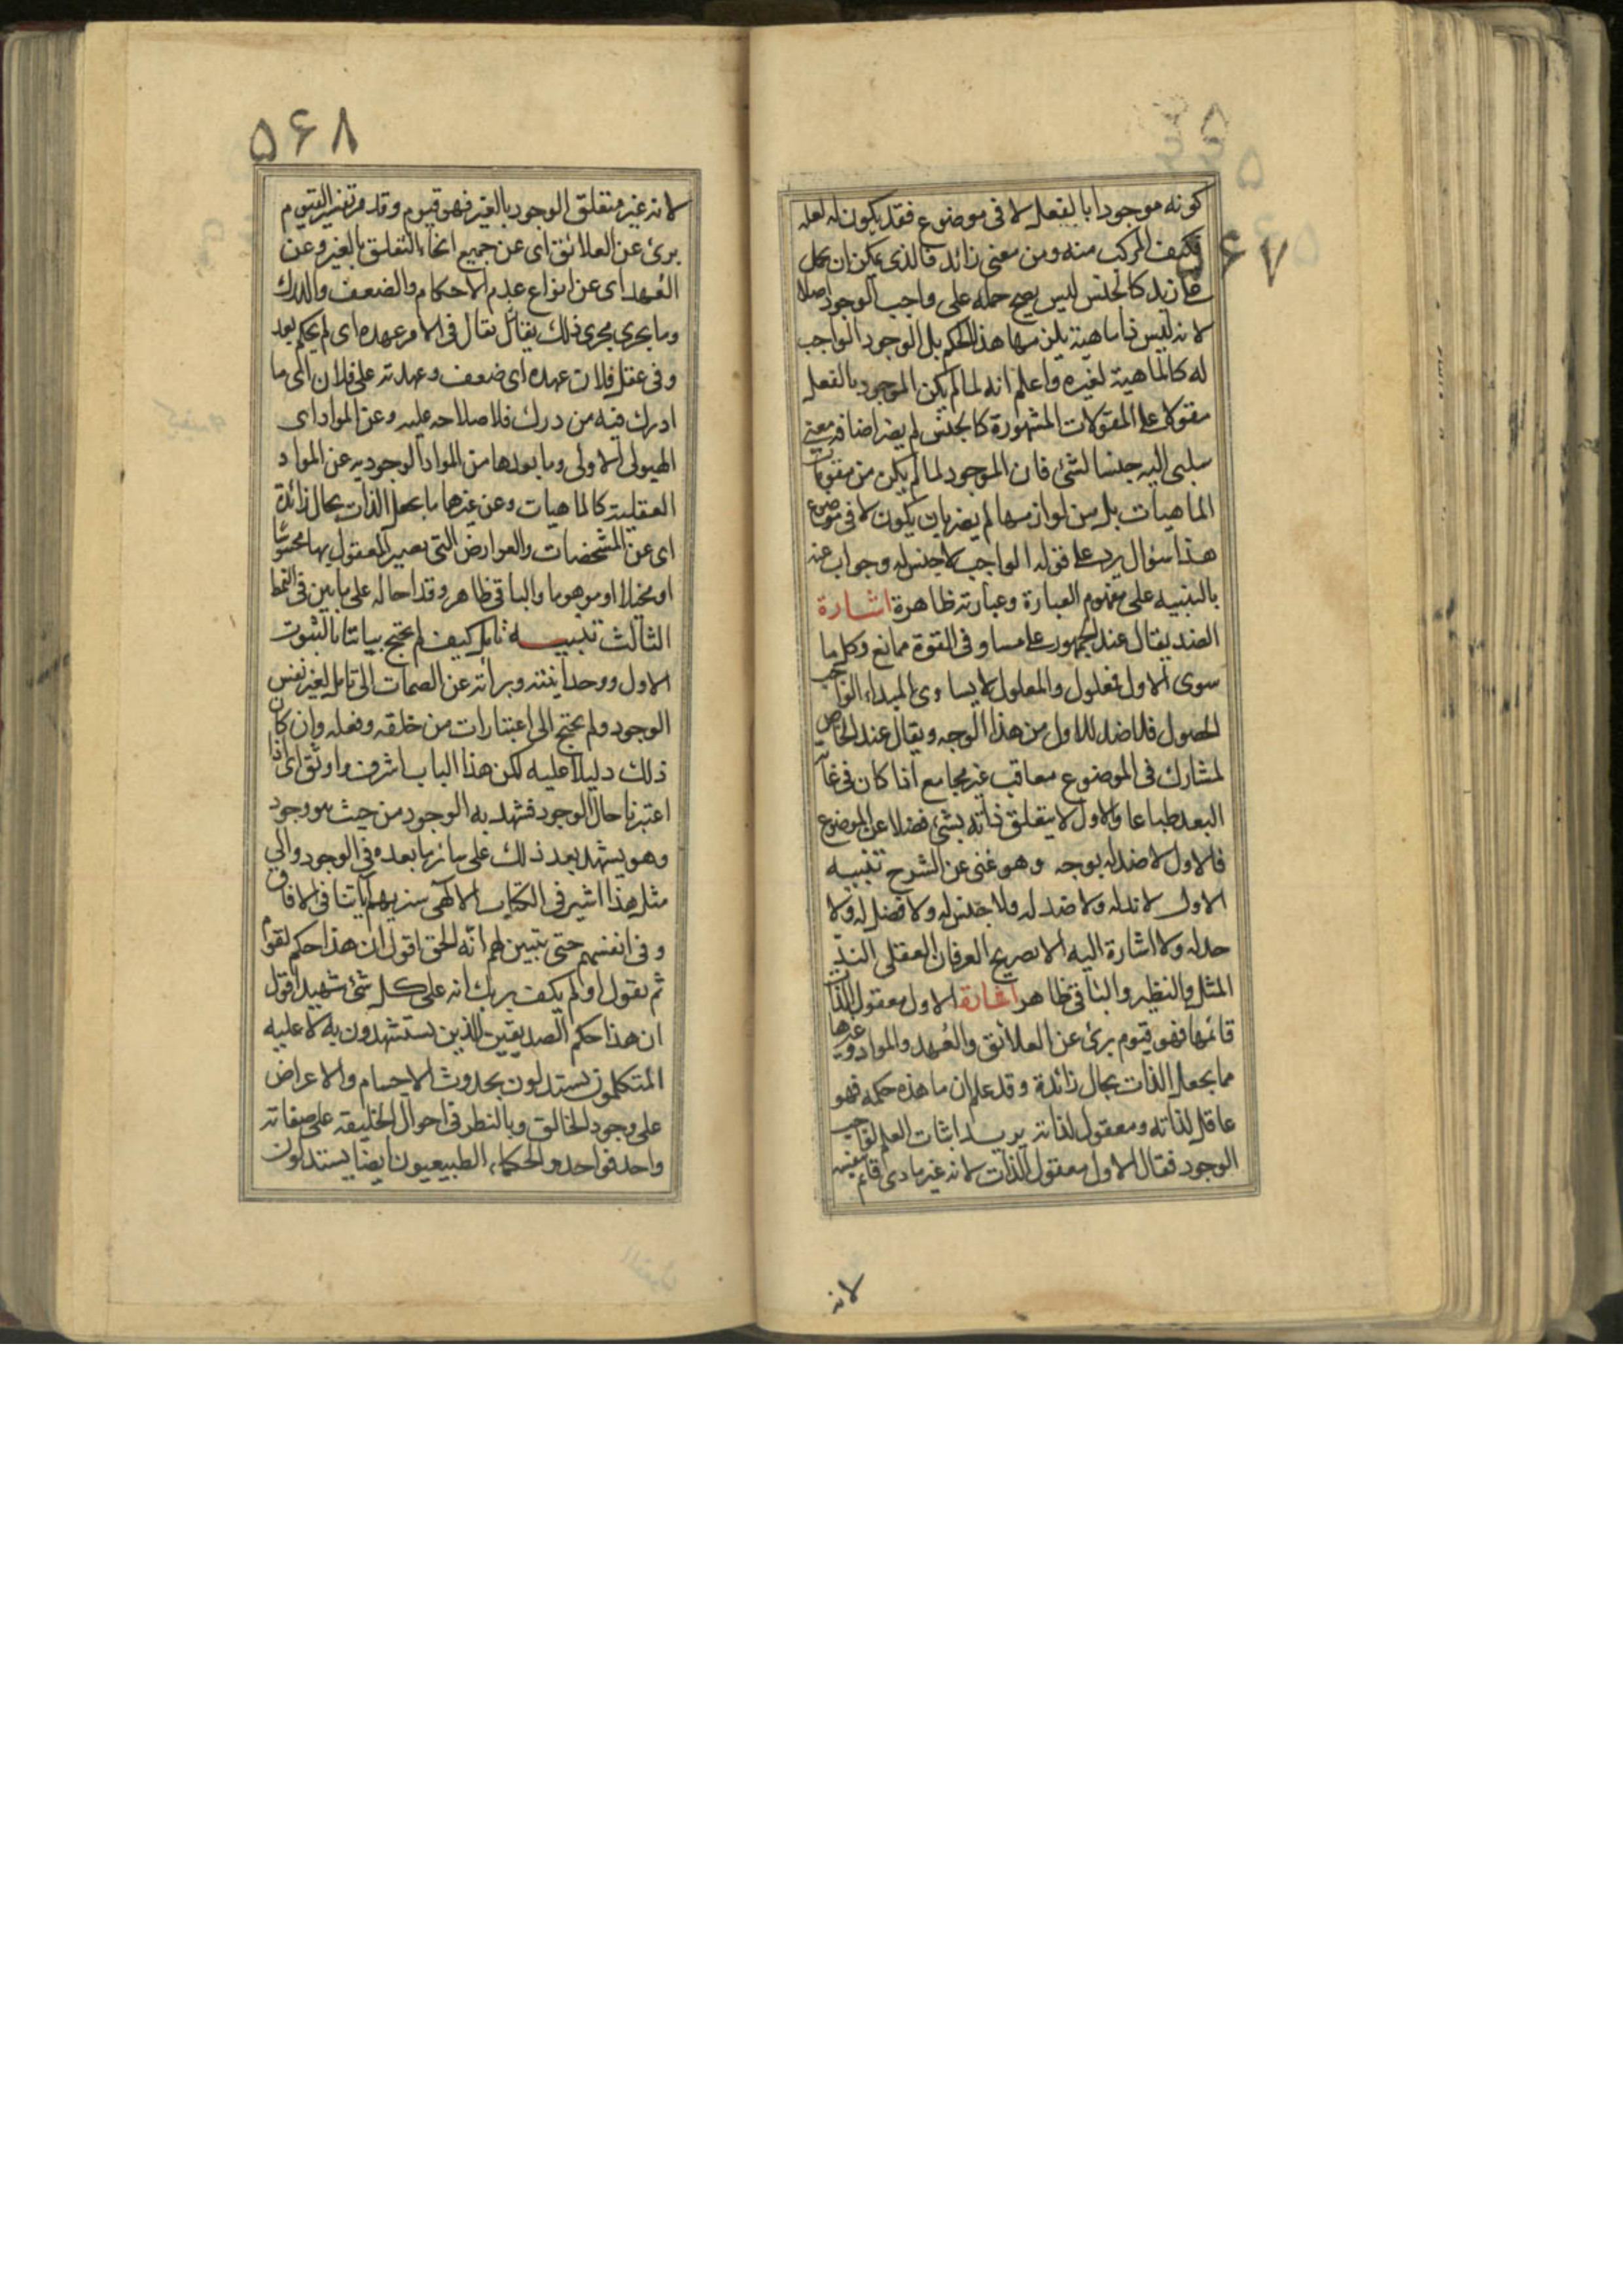 ۵۶۷
كونه موجودا بالفعل لا فى موضوع فقد يكون له لعله
فكيف المركب منه ومن معنى زائد فالذى يمكن ان يحمل
على زيد كالجنس ليس يصح حمله على واجب الوجود اصلا
لانه ليس ذا ماهية يلزمها هذا الحكم بل الوجود الواجب
له كالماهية لغيره واعلم انه لما لم يكن الموجود بالفعل
مقولا على المقولات المشهورة كالجنس لم يصر اضافة معنى
سلبى اليه جنسا لشئ فان الموجود لما لم يكن من مقومات
الماهيات بل من لوازمها لم يصر بان يكون لا فى موضوع
هذا سؤال يرد على قوله الواجب لا جنس له وجواب عنه
بالتنبيه على مفهوم العبارة وعبارته ظاهرة اشارة
الضد يقال عند الجمهور على مساو فى القوة ممانع وكل ما
سوى الاول فمعلول والمعلول لا يساوى المبداء الواجب
الحصول فلا ضد للاول من هذا الوجه ويقال عند الخاص
لمشارك فى الموضوع معاقب غير مجامع اذا كان فى غاية
البعد طباعا والاول لا يتعلق ذاته بشئ فضلا عن الموضوع
فالاول لا ضد له بوجه وهو غنى عن الشرح تنبيه
الاول لا ند له ولا ضد له ولا جنس له ولا فصل له ولا
حد له ولا اشارة اليه الا بصريح العرفان العقلى الند
المثل والنظير والباقى ظاهر اشارة الاول معقول الذات
قائمها فهو قيوم برئ عن العلائق والعُهد والمواد وغيرها
مما يجعل الذات بحال زائدة وقد علم ان ما هذه حكمه فهو
عاقل لذاته ومعقول لذاته يريد اثبات العلم لواجب
الوجود فقال الاول معقول الذات لانه غير مادى قائم بنفسه
لانه
۵۶۸
لانه غير متعلق الوجود بالغير فهو قيوم وقد مر تفسير القيوم
برئ عن العلائق اى عن جميع انحاء التعلق بالغير وعن
العُهد اى عن انواع عدم الاحكام والضعف والدرك
وما يجرى مجرى ذلك يقال يقال فى الامر عهده اى لم يحكم بعد
وفى عقل فلان عهده اى ضعف وعهدته على فلان اى ما
ادرك فيه من درك فلاصلاحه عليه وعن المواد اى
الهيولى الاولى وما بعدها من المواد الوجوديه عن المواد
العقلية كالماهيات وعن غيرها ما يجعل الذات بحال زائدة
اى عن المشخصات والعوارض التى يصير المعقول بها محسوسا
او مخيلا او موهوما والباقى ظاهر وقد احاله على ما بين فى النمط
الثالث تنبيه تامل كيف لم يحتج بياننا بالثبوت
الاول ووحدانيته وبرائته عن الصمات الى تامل لغير نفس
الوجود ولم يحتج الى اعتبارات من خلقه وفعله وان كان
ذلك دليلا عليه لكن هذا الباب اشرف واوثق اى اذا
اعتبرنا حال الوجود فشهد به الوجود من حيث هو وجود
وهو يشهد بعد ذلك على سائر ما بعده فى الوجود والى
مثل هذا اشير فى الكتاب الالهى سنريهم آياتنا فى الافاق
وفى انفسهم حتى يتبين لهم انه الحق اقول ان هذا حكم لقوم
ثم يقول اولم يكف بربك انه على كل شئ شهيد اقول
ان هذا حكم الصديقين الذين يستشهدون به لا عليه
المتكلمون يستدلون بحدوث الاجسام والاعراض
على وجود الخالق وبالنظر فى احوال الخليقة على صفاته
واحد فواحد والحكماء الطبيعيون ايضا يستدلون